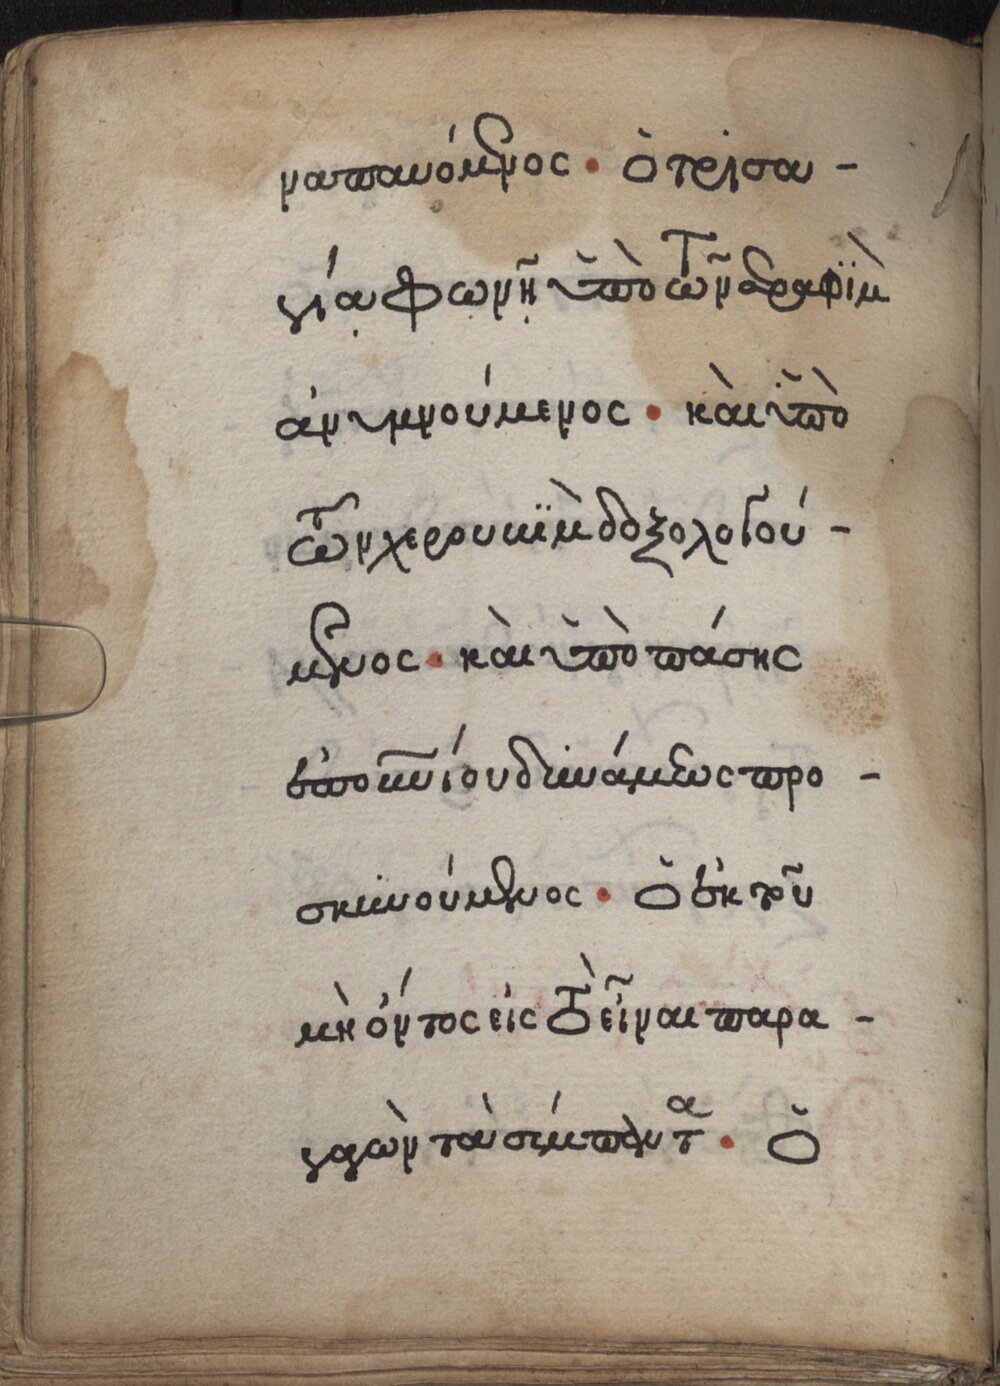 ναπαυόμενος · ὁ τρισα -
γία φωνῆ ὑπὸ τῶν σεραφὶμ
ἀνυμνούμενος · καὶ ὑπὸ
τῶν χερουβὶμ δοξολογού -
μενος · καὶ ὑπὸ πάσης
ἐπουρανίου δυνάμεως προ -
σκυνούμενος · ὁ ἐκ τοῦ
μὴ ὄντος εἰς τὸ εἶναι παρα -
γαγὼν τὰ σύμπαντα · ὁ